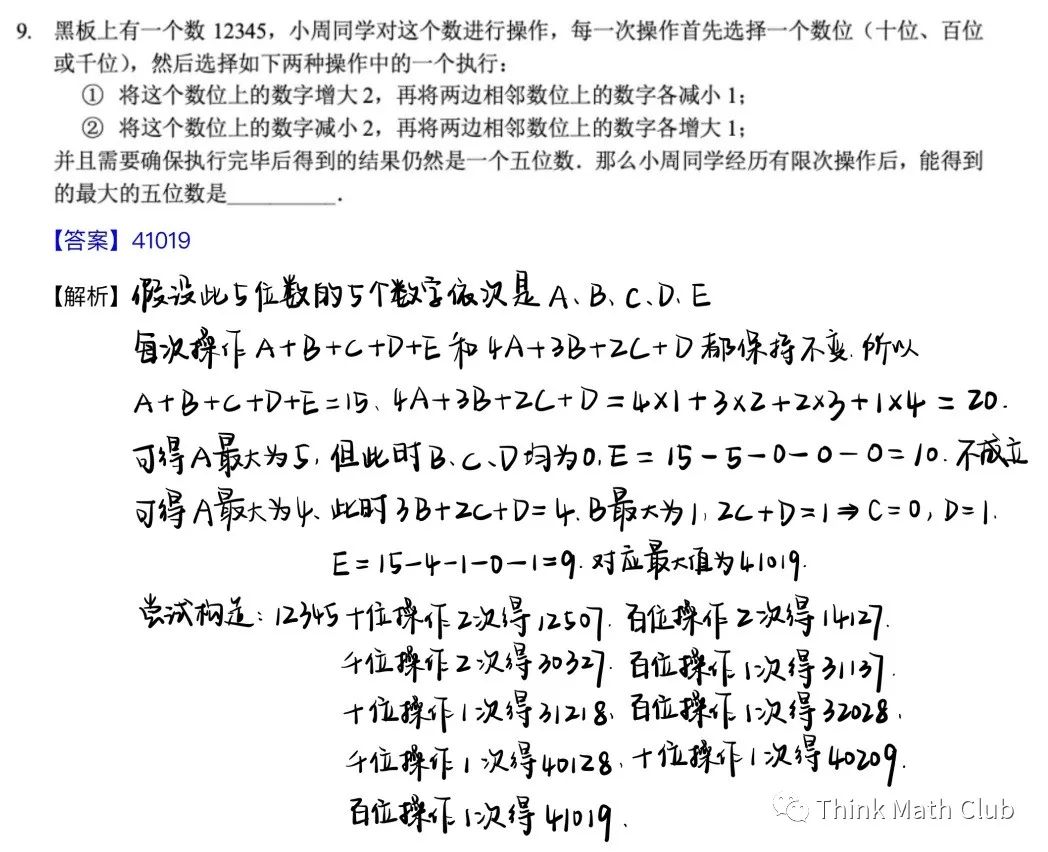 9. 黑板上有一个数 12345，小周同学对这个数进行操作，每一次操作首先选择一个数位（十位、百位
或千位），然后选择如下两种操作中的一个执行：
① 将这个数位上的数字增大 2，再将两边相邻数位上的数字各减小 1；
② 将这个数位上的数字减小 2，再将两边相邻数位上的数字各增大 1；
并且需要确保执行完毕后得到的结果仍然是一个五位数．那么小周同学经历有限次操作后，能得到
的最大的五位数是__________．
【答案】41019
【解析】假设此5位数的5个数字依次是 A、B、C、D、E
每次操作 A+B+C+D+E 和 4A+3B+2C+D 都保持不变. 所以
A+B+C+D+E=15、4A+3B+2C+D=4×1+3×2+2×3+1×4=20.
可得A最大为5, 但此时B、C、D均为0, E=15-5-0-0-0=10. 不成立
可得A最大为4、此时3B+2C+D=4. B最大为1, 2C+D=1⇒C=0, D=1.
E=15-4-1-0-1=9. 对应最大值为41019.
尝试构造：12345十位操作2次得12507. 百位操作2次得14127.
千位操作2次得30327. 百位操作1次得31137.
十位操作1次得31218、百位操作1次得32028.
千位操作1次得40128、十位操作1次得40209.
百位操作1次得41019.
Think Math Club